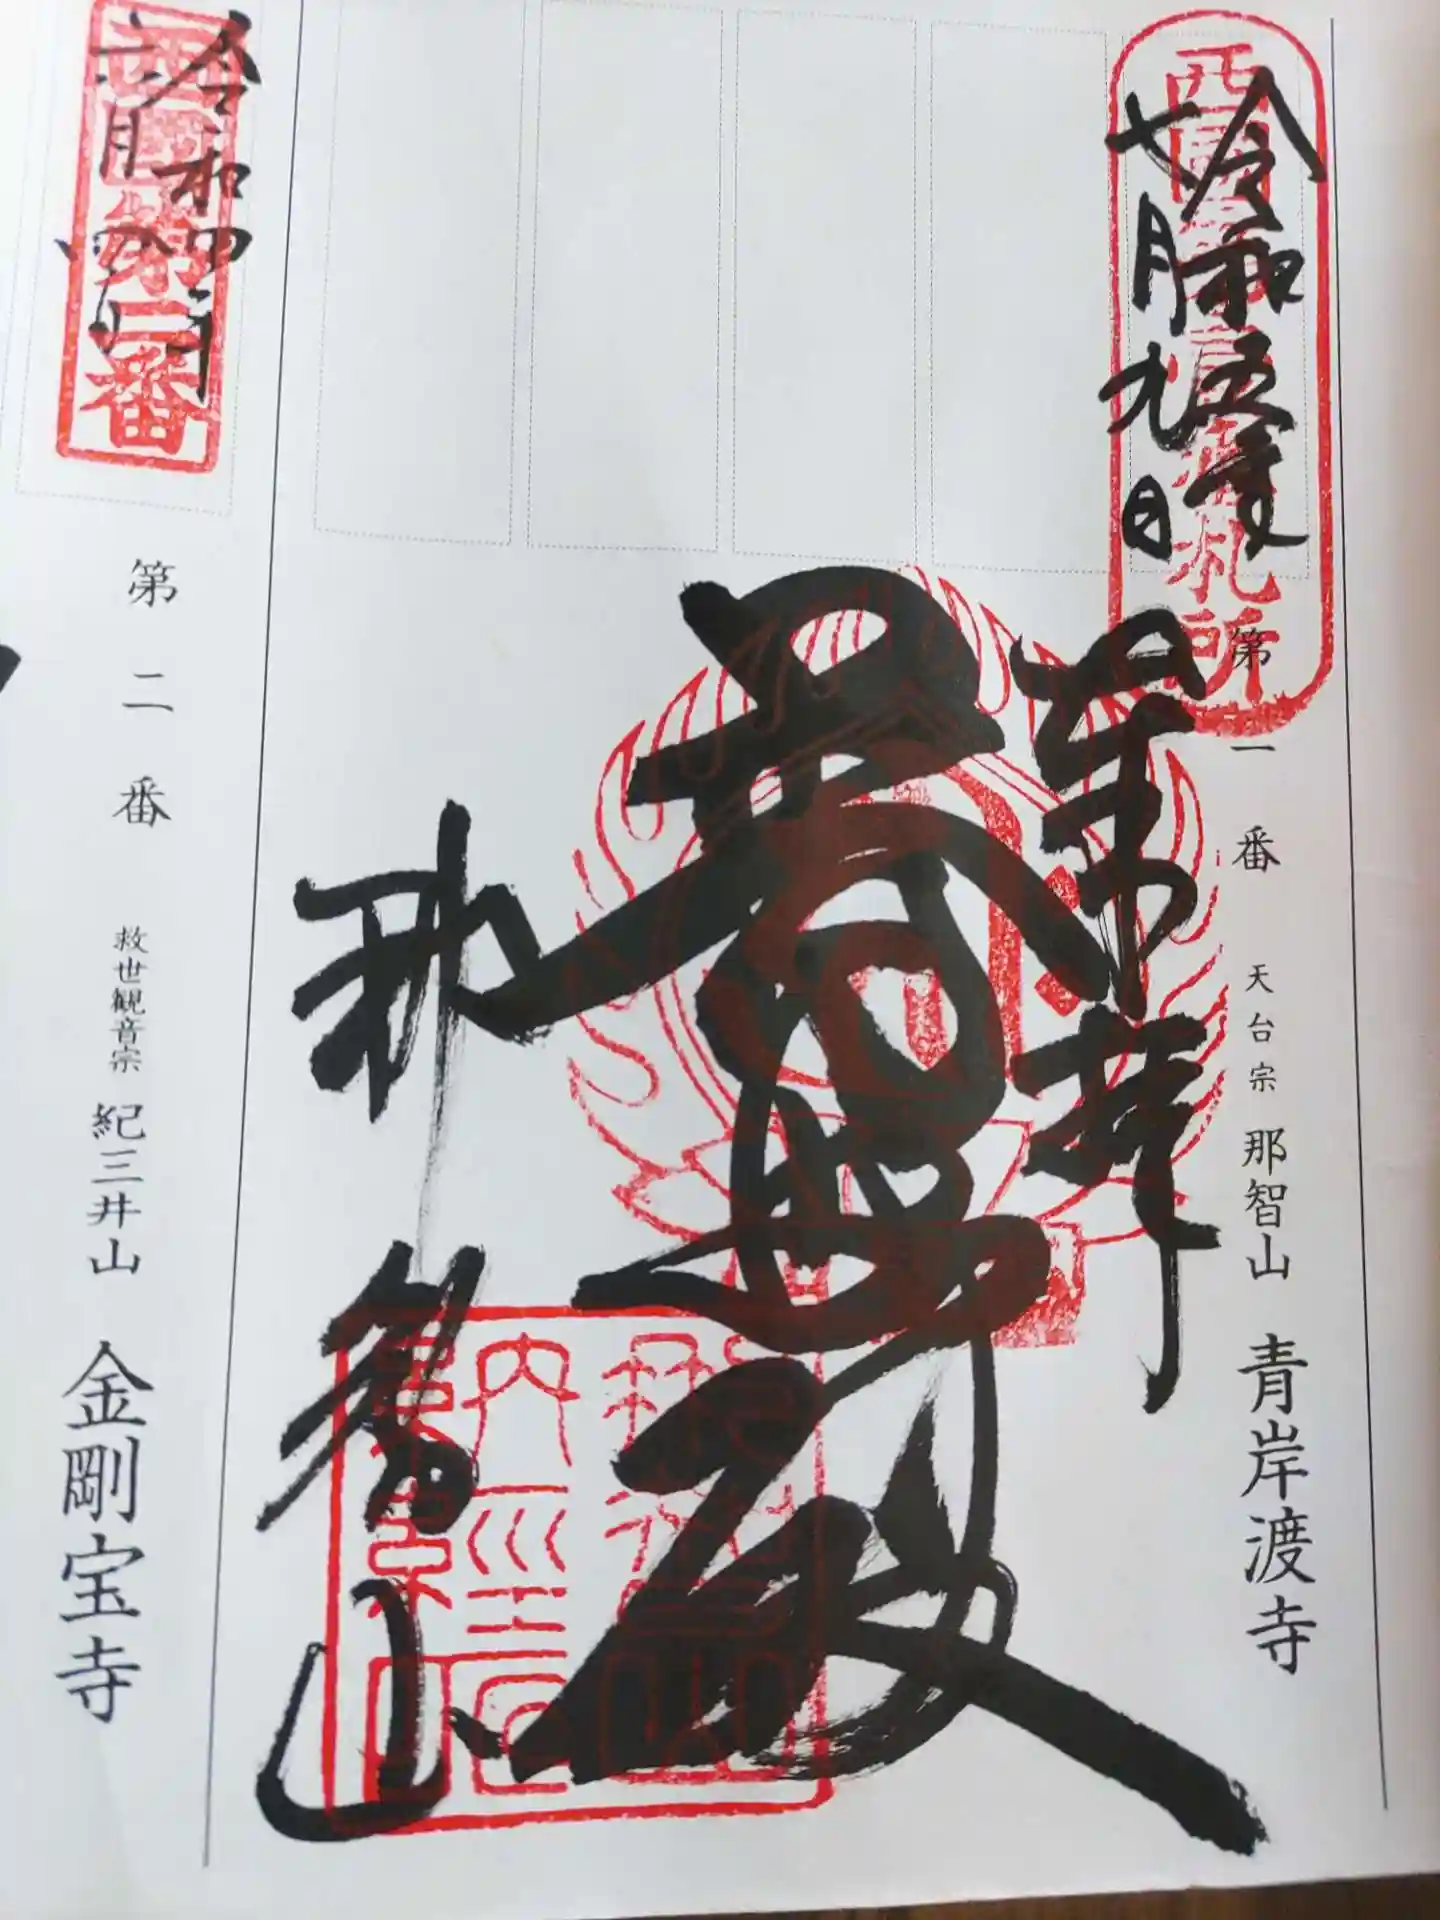 令和五年
七月九日
奉拝
普照殿
那智山
西国第一番札所
第一番 天台宗 那智山 青岸渡寺
令和四年
六月四日
西国第二番
第二番 救世観音宗 紀三井山 金剛宝寺